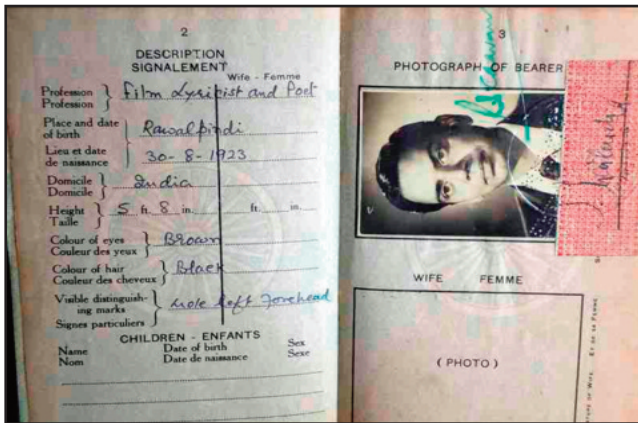 2
DESCRIPTION
SIGNALEMENT
Wife - Femme
Profession
Profession
Film Lyricist and Poet
Place and date
of birth
Rawalpindi
Lieu et date
de naissance
30-8-1923
Domicile
Domicile
India
Height
Taille
5 ft. 8 in. ft. in.
Colour of eyes
Couleur des yeux
Brown
Colour of hair
Couleur des cheveux
Black
Visible distinguish-
ing marks
Signes particuliers
Mole left Forehead
CHILDREN - ENFANTS
Name Date of birth Sex
Nom Date de naissance Sexe
3
PHOTOGRAPH OF BEARER
WIFE FEMME
(PHOTO)